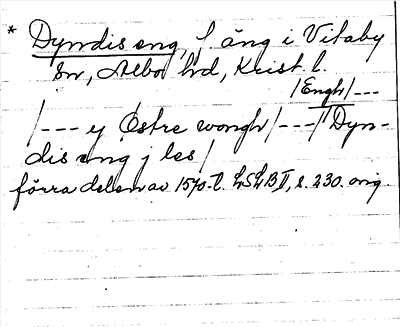 * Dyndis eng, f. äng i Vitaby
sn, Albo hd, Krist. l.
/Engh/---
/--- y Østre wongh/---/ Dyn-
dis eng j les/
förra delen av 1570-t. LSLB II, s. 230. orig.